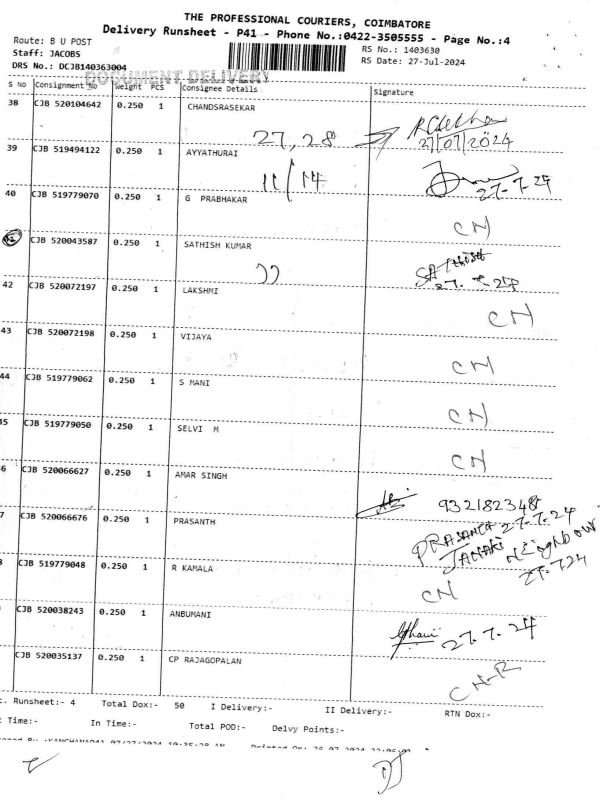 THE PROFESSIONAL COURIERS, COIMBATORE
Delivery Runsheet - P41 - Phone No.:0422-3505555 - Page No.:4
Route: B U POST
RS No.: 1403630
Staff: JACOBS
RS Date: 27-Jul-2024
DRS No.: DCJB140363004
DOCUMENT DELIVERY
S No Consignment No Weight PCS Consignee Details Signature
38 CJB 520104642 0.250 1 CHANDSRASEKAR
27, 28
27/07/2024
39 CJB 519494122 0.250 1 AYYATHURAI
11/14
27-7-24
40 CJB 519779070 0.250 1 G PRABHAKAR
CN
CJB 520043587 0.250 1 SATHISH KUMAR
SATHISH
42 CJB 520072197 0.250 1 LAKSHMI
CN
43 CJB 520072198 0.250 1 VIJAYA
CN
44 CJB 519779062 0.250 1 S MANI
CN
45 CJB 519779050 0.250 1 SELVI M
CN
6 CJB 520066627 0.250 1 AMAR SINGH
932182348
7 CJB 520066676 0.250 1 PRASANTH
PRASANTH 27-7-24
JANAKI NEIGHBOUR
27-724
CJB 519779048 0.250 1 R KAMALA
CN
CJB 520038243 0.250 1 ANBUMANI
27.7.24
CJB 520035137 0.250 1 CP RAJAGOPALAN
CN-R
. Runsheet:- 4 Total Dox:- 50 I Delivery:- II Delivery:- RTN Dox:-
t Time:- In Time:- Total POD:- Delvy Points:-